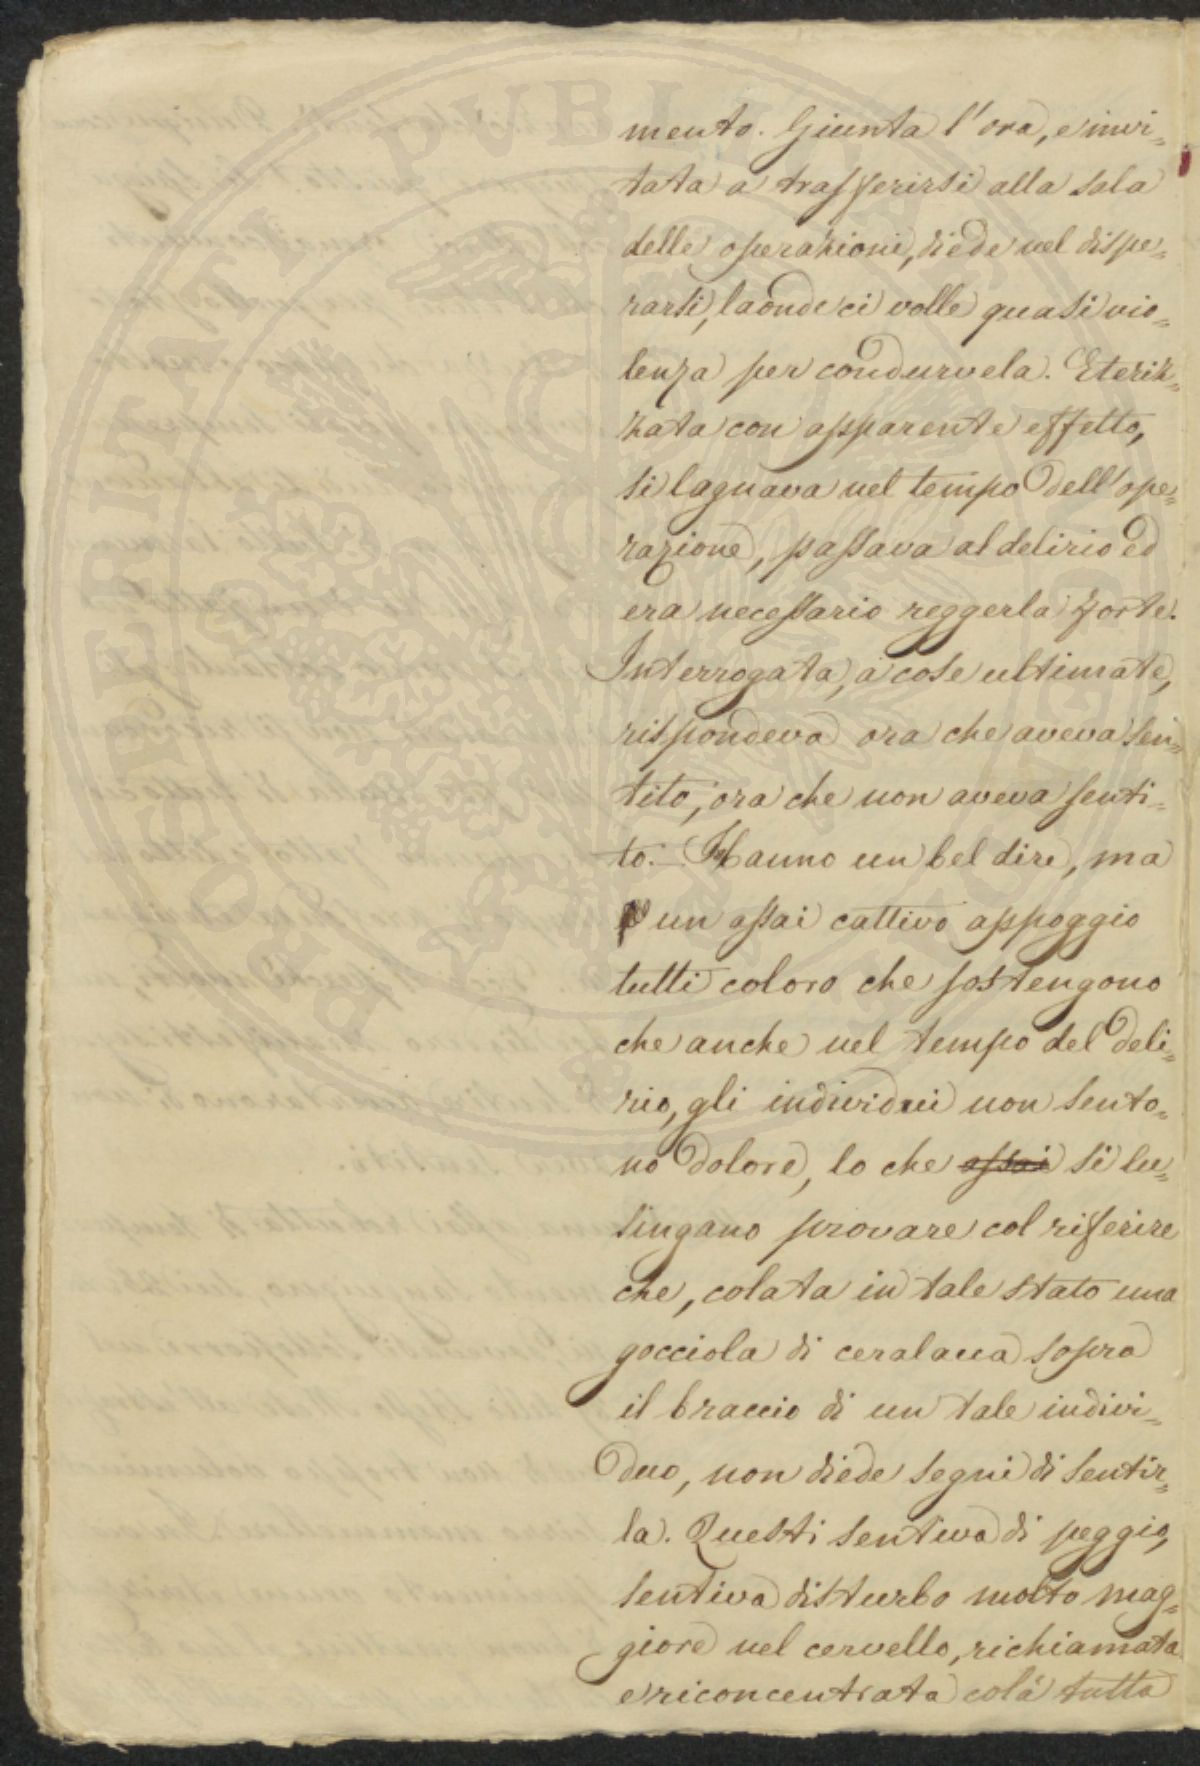 mento. Giunta l'ora, e invi=
tata a trasferirsi alla sala
delle operazioni, diede nel dispe=
rarsi, laonde ci volle quasi vio=
lenza per condurvela. Eteriz=
zata con apparente effetto,
si lagnava nel tempo dell'ope=
razione, passava al delirio ed
era necessario reggerla forte.
Interrogata, a cose ultimate,
rispondeva ora che aveva sen=
tito, ora che non aveva senti=
to. Hanno un bel dire, ma
un assai cattivo appoggio
tutti coloro che sostengono
che anche nel tempo del deli=
rio, gli individui non sento=
no dolore, lo che assai si lu=
singano provare col riferire
che, colata in tale stato una
gocciola di ceralacca sopra
il braccio di un tale indivi=
duo, non diede segni di sentir=
la. Questi sentiva di peggio,
sentiva disturbo molto mag=
giore nel cervello, richiamata
e riconcentrata colà tutta
PROSPERITATI PUBLICAE